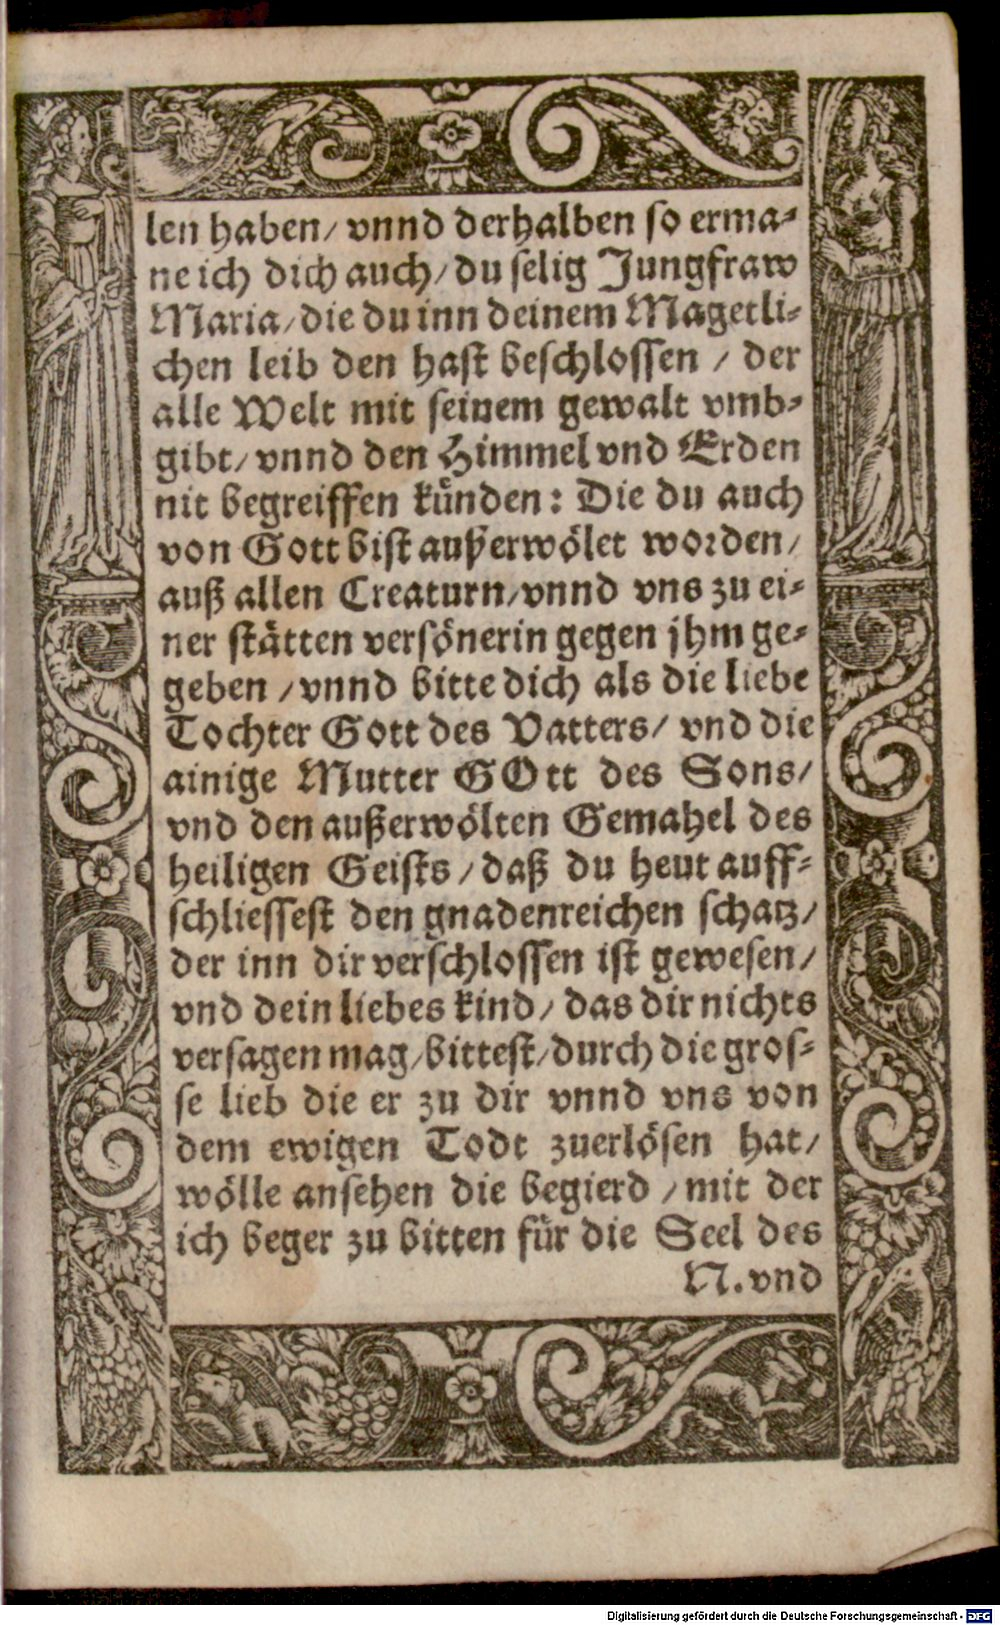 len haben/ vnnd derhalben so erma-
ne ich dich auch/ du selig Jungfraw
Maria/ die du inn deinem Magetli-
chen leib den hast beschlossen / der
alle Welt mit seinem gewalt vmb-
gibt/ vnnd den Himmel vnd Erden
nit begreiffen künden: Die du auch
von Gott bist außerwölet worden/
auß allen Creaturn/ vnnd vns zu ei-
ner stätten versönerin gegen jhm ge-
geben / vnnd bitte dich als die liebe
Tochter Gott des Vatters/ vnd die
ainige Mutter GOtt des Sons/
vnd den außerwölten Gemahel des
heiligen Geists / daß du heut auff-
schliessest den gnadenreichen schatz/
der inn dir verschlossen ist gewesen/
vnd dein liebes kind/ das dir nichts
versagen mag/ bittest/ durch die gros-
se lieb die er zu dir vnnd vns von
dem ewigen Todt zuerlösen hat/
wölle ansehen die begierd / mit der
ich beger zu bitten für die Seel des
N. vnd
Digitalisierung gefördert durch die Deutsche Forschungsgemeinschaft - DFG